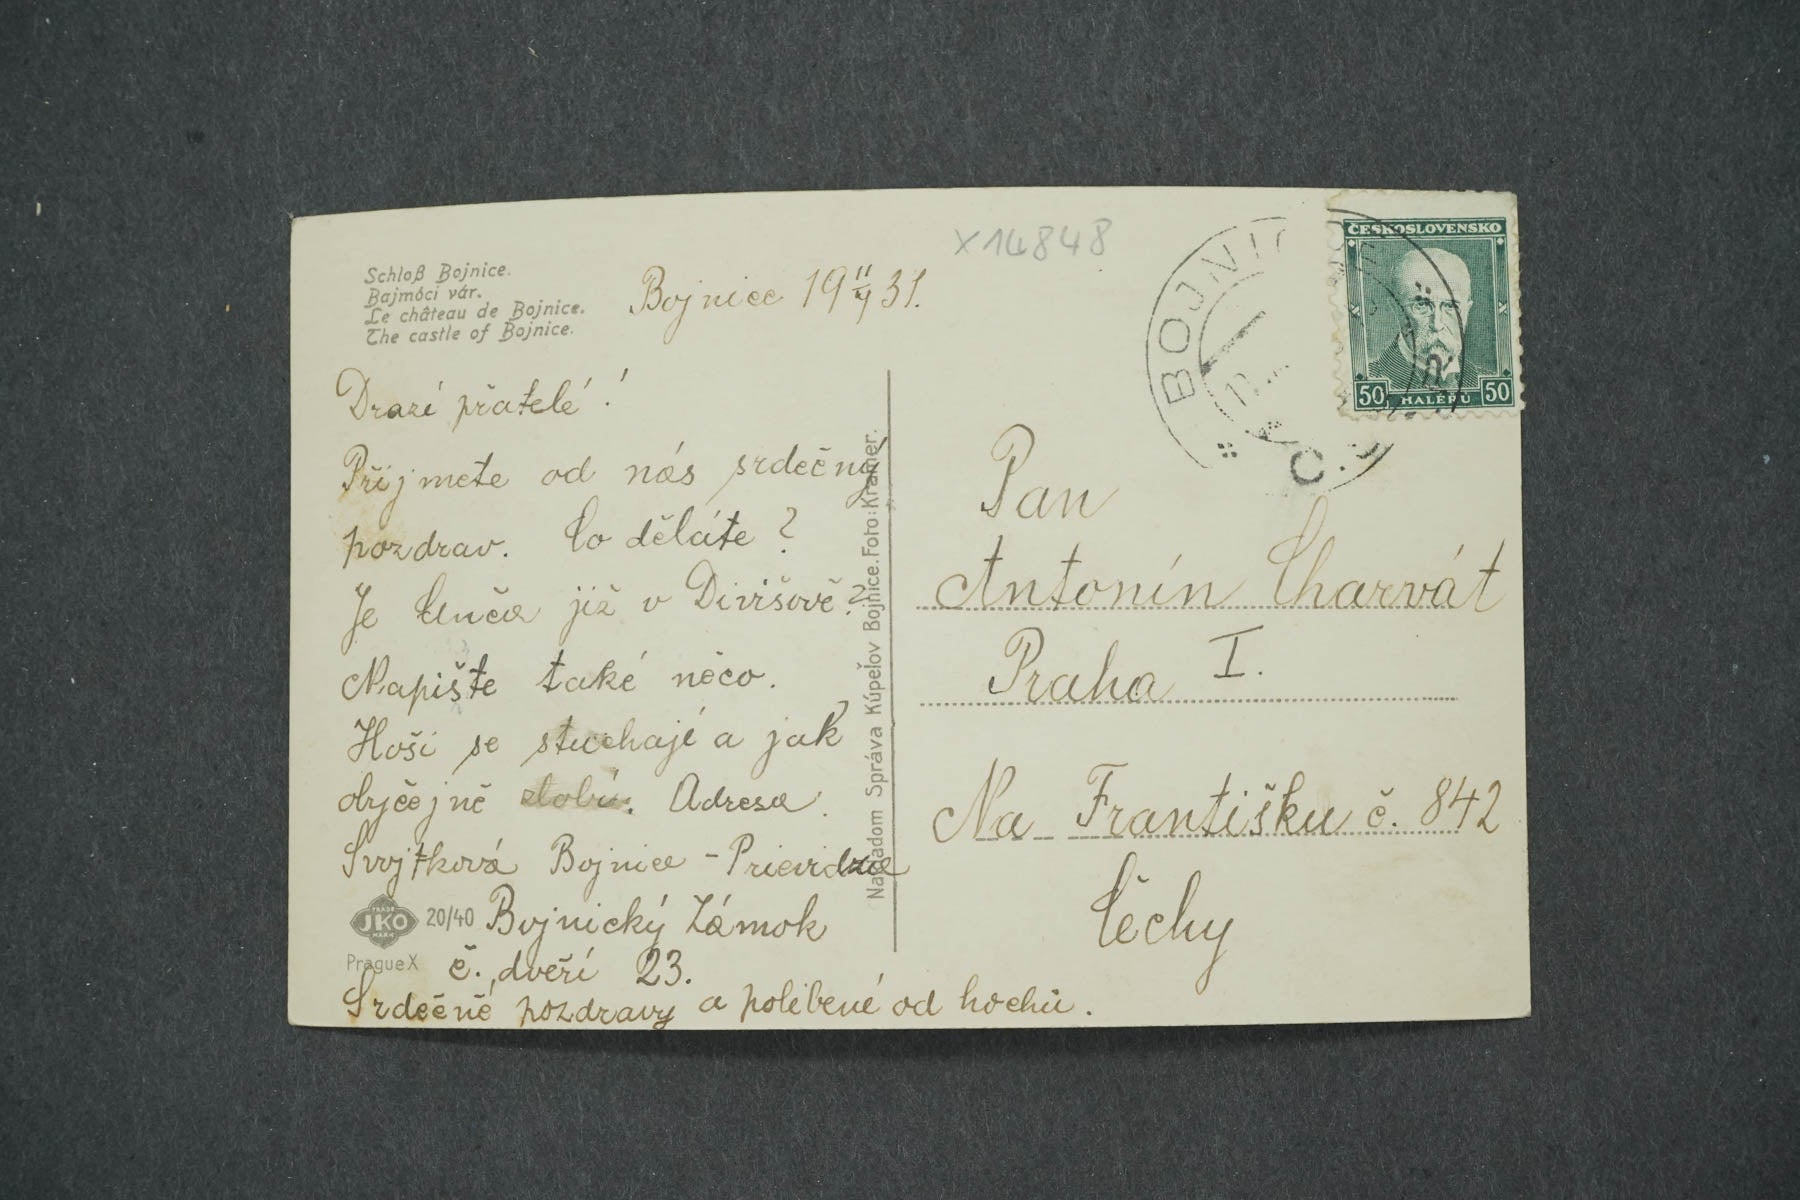 Schloß Bojnice.
Bajmóci vár.
Le château de Bojnice.
The castle of Bojnice.
Bojnice 19 11/IV 31.
X14848
Drazí přátelé!
Přijmete od nás srdečný
pozdrav. Co děláte?
Je Unča již v Divišově?
Napište také něco.
Hoši se stuchají a jak
obyčejně zlobí. Adresa:
Svojtková Bojnice - Prievidza
Bojnický Zámok
č. dveří 23.
Srdečné pozdravy a políbené od hochů.
TRADE
JKO
MARK
20/40
Prague X
Nakladom Správa Kúpeľov Bojnice. Foto: Kramer.
BOJNIC
ČESKOSLOVENSKO
50 HALÉŘŮ 50
Pan
Antonín Charvát
Praha I.
Na Františku č. 842
Čechy